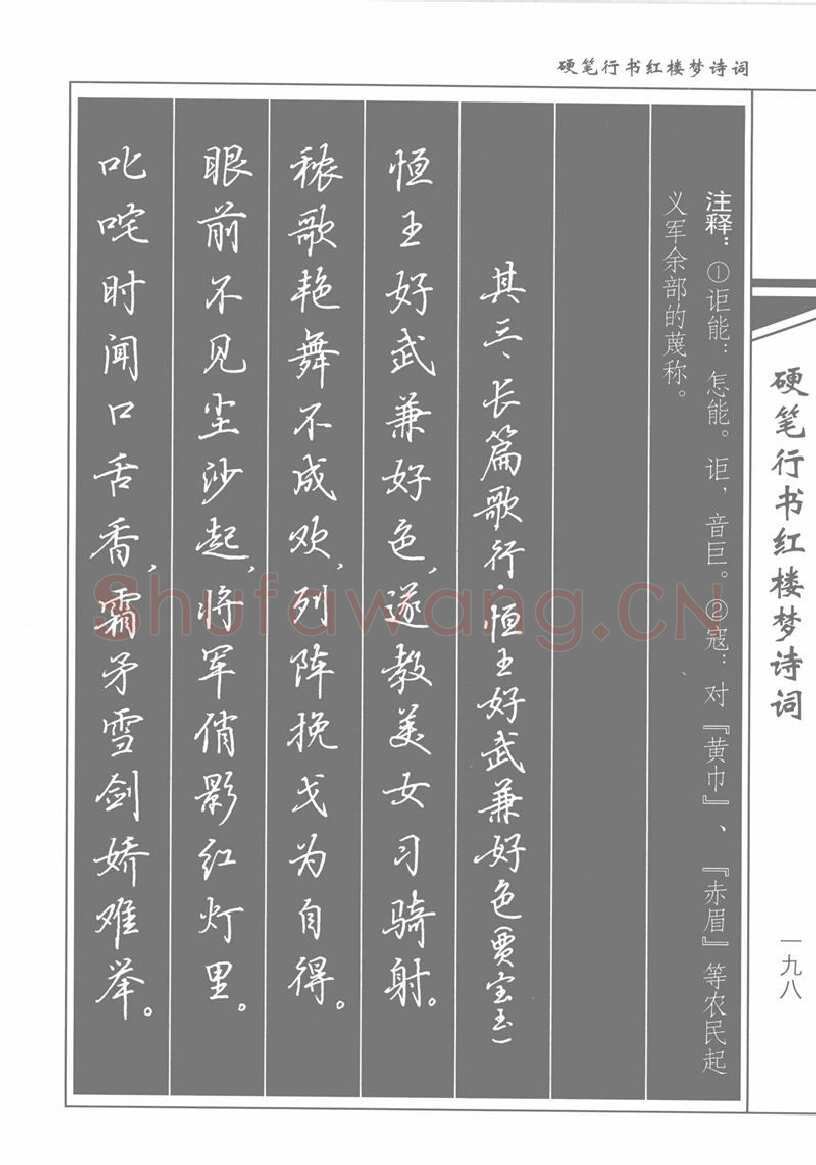 硬笔行书红楼梦诗词
注释：①讵能：怎能。讵，音巨。②寇：对『黄巾』、『赤眉』等农民起
义军余部的蔑称。
其三、长篇歌行·恒王好武兼好色（贾宝玉）
恒王好武兼好色，遂教美女习骑射。
秾歌艳舞不成欢，列阵挽戈为自得。
眼前不见尘沙起，将军俏影红灯里。
叱咤时闻口舌香，霜矛雪剑娇难举。
硬笔行书红楼梦诗词
一九八
Shufawang.CN